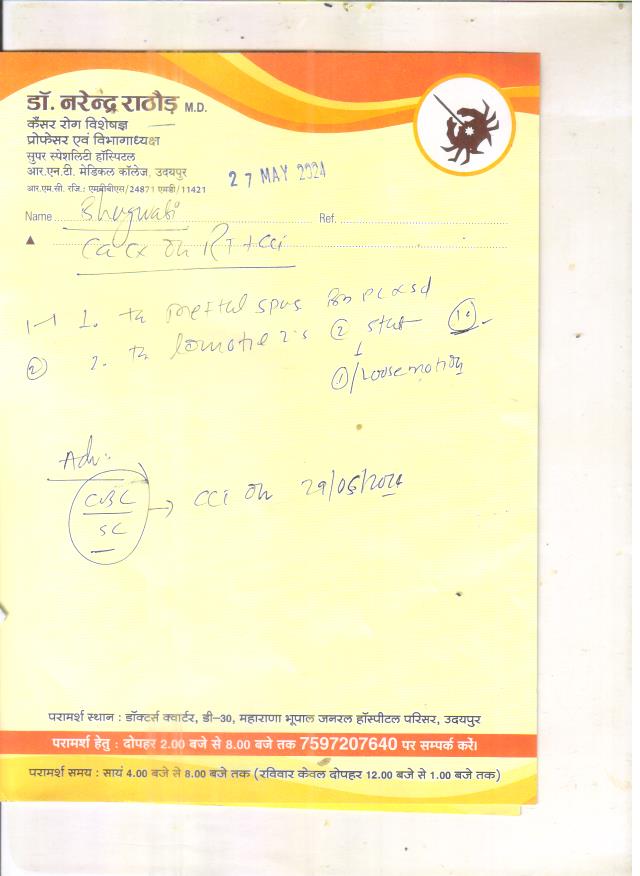 डॉ. नरेन्द्र राठौड़ M.D.
कैंसर रोग विशेषज्ञ
प्रोफेसर एवं विभागाध्यक्ष
सुपर स्पेशलिटी हॉस्पिटल
आर.एन.टी. मेडिकल कॉलेज, उदयपुर
आर.एम.सी. रजि.: एमबीबीएस/24871 एमडी/11421
27 MAY 2024
Name Bhagwati Ref.
Ca Cx on RT + CCT
1. Tab
2. Tab 2 stat
1/Loose motion
Adv:-
CBC
→ CCT on 29/05/2024
SC
परामर्श स्थान : डॉक्टर्स क्वार्टर, डी-30, महाराणा भूपाल जनरल हॉस्पीटल परिसर, उदयपुर
परामर्श हेतु : दोपहर 2.00 बजे से 8.00 बजे तक 7597207640 पर सम्पर्क करें।
परामर्श समय : सायं 4.00 बजे से 8.00 बजे तक (रविवार केवल दोपहर 12.00 बजे से 1.00 बजे तक)